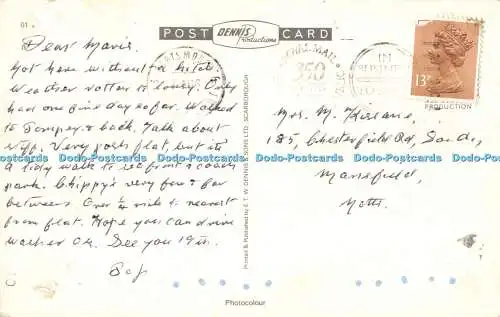 01
POST CARD
DENNIS
Productions
ROYAL MAIL
350
IN
13P
PRODUCTION
Dear Mavis.
Got here without a hitch.
Weather rotten & lousy. Only
had one fine day so far. Walked
to & back. Talk about
Very posh flat, but it's
a long walk to sea front & coach
park. Chippy's very few & far
between. Over ¼ mile to nearest
from flat. Hope you can drive
washer O.K. See you 19th.
Mrs. M.
185, Chesterfield Rd, South,
Mansfield,
Notts.
Printed & Published by E. T. W. DENNIS & SONS LTD. SCARBOROUGH
Dodo-Postcards Dodo-Postcards Dodo-Postcards Dodo-Postcards Dodo-Postcards Dodo-Postcards
Photocolour